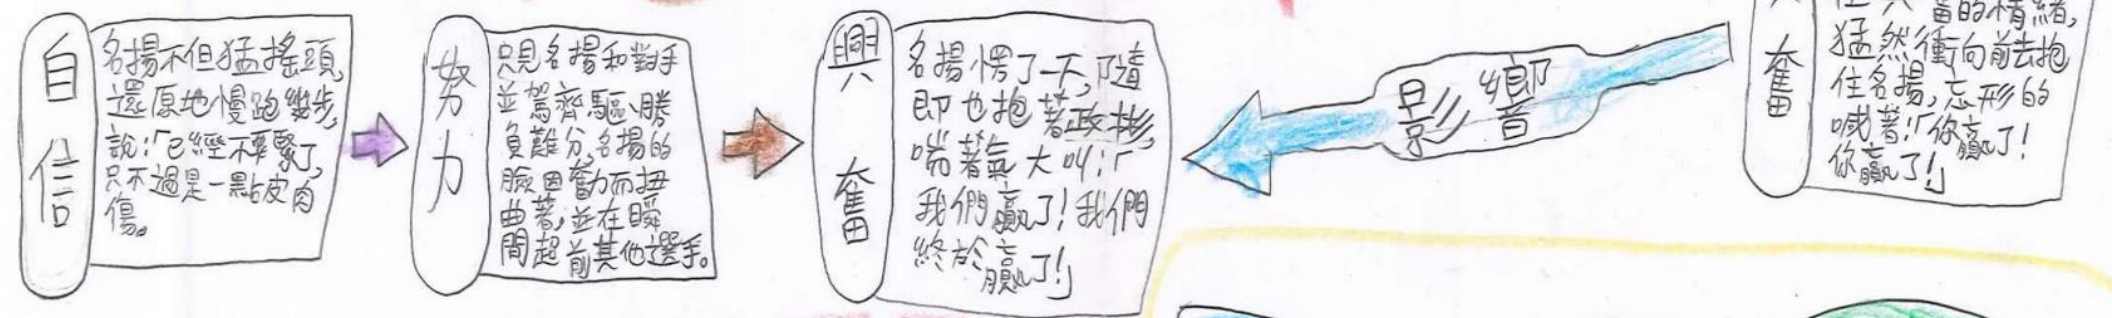 自信
名揚不但猛搖頭,
還原地慢跑幾步,
說:「已經不要緊了,
只不過是一點皮肉
傷。
努力
只見名揚和對手
並駕齊驅、勝
負難分,名揚的
臉因奮力而扭
曲著,並在瞬
間超前其他選手。
興奮
名揚愣了一下,隨
即也抱著政彬,
喘著氣大叫:「
我們贏了!我們
終於贏了!」
影響
奮
奮的情緒,
猛然衝向前去抱
住名揚,忘形的
喊著:「你贏了!
你贏了!」